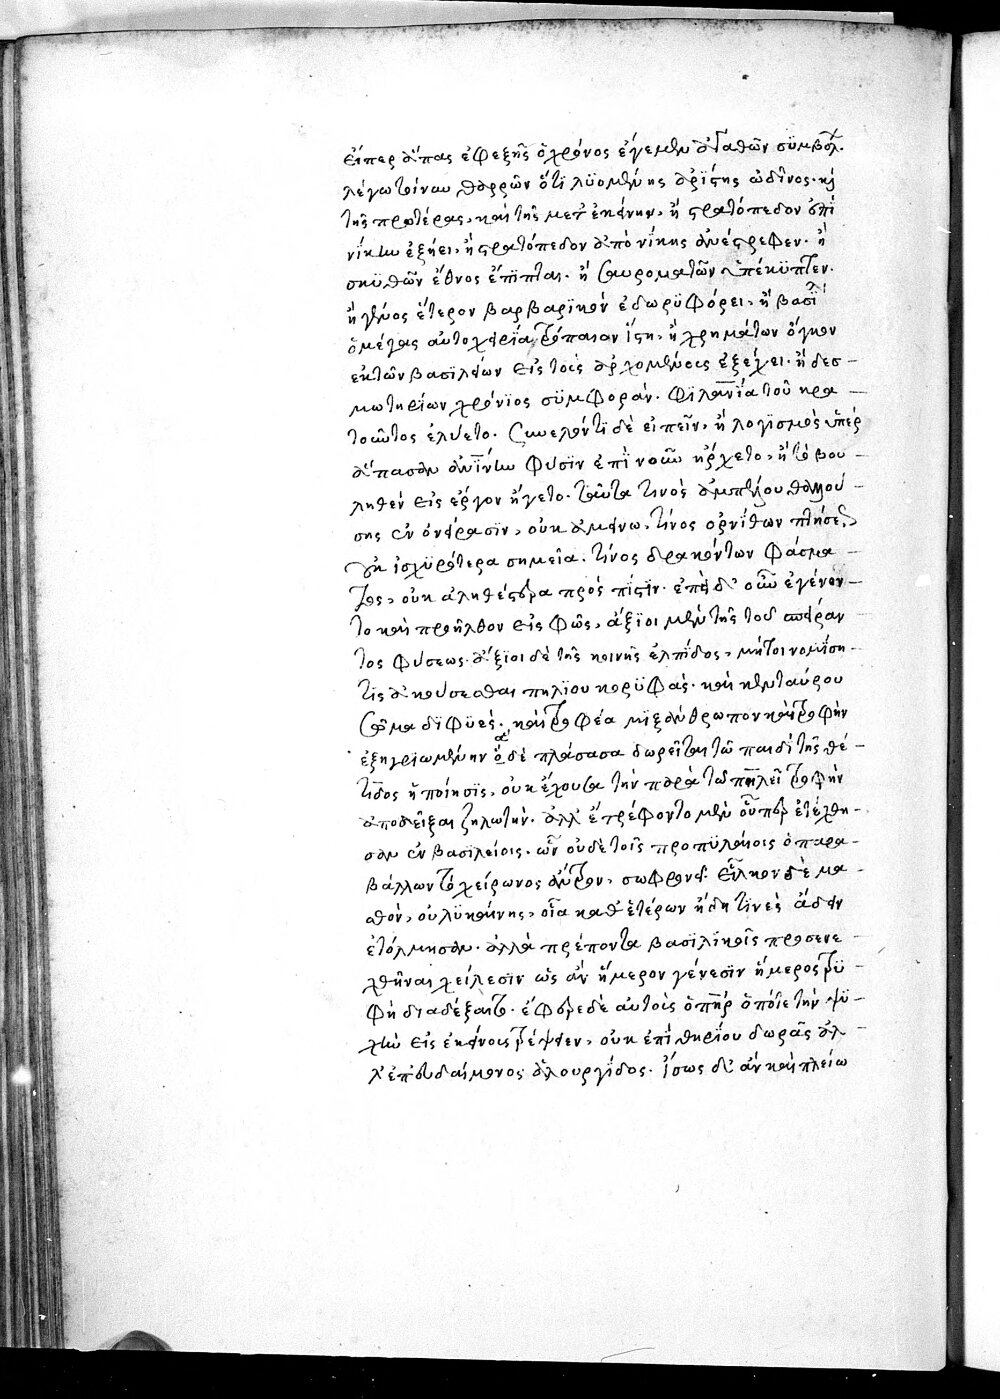 εἴπερ ἅπας ἐφεξῆς ὁ χρόνος ἔγεμεν ἀγαθῶν συμβόλ.
λέγω τοίνυν θαρρῶν ὅτι λυομένης ἀρίστης ὠδῖνος. καὶ
τῆς προτέρας, καὶ τῆς μετ' ἐκείνην, ἢ στρατόπεδον ἐπὶ
νίκην ἐξήει, ἢ στρατόπεδον ἀπὸ νίκης ἀνέστρεφεν. ἢ
σκυθῶν ἔθνος ἔπιπται. ἢ σαυροματῶν ὑπέκυπτεν.
ἢ γένος ἕτερον βαρβαρικὸν ἐδωρυφόρει, ἢ βασι
ὁ μέγας αὐτοχειρία τρόπαιον ἵστη, ἢ χρημάτων ὄγκον
ἐκ τῶν βασιλείων εἰς τοὺς ἀρχομένους ἐξέχει. ἢ δεσ-
μωτηρίων χρόνιος συμφορὰν. φιλανία τοῦ κρα-
τοῦντος ἐλύετο. συνελόντι δὲ εἰπεῖν, ἢ λογισμὸς ὑπὲρ
ἅπασαν ἀνίνων φύσιν ἐπὶ νοῦν ἤρχετο, ἢ τὸ βου-
ληθὲν εἰς ἔργον ἤγετο. ταῦτα τινὸς ἀμπέλου θαλλού-
σης ἐν ὀνείρασιν, οὐκ ἀμείνω, τίνος ὀρνίθων πτήσε
οὐκ ἰσχυρότερα σημεῖα. τίνος δρακόντων φάσμα-
τος, οὐκ ἀληθέστερα πρὸς πίστιν. ἐπεὶ δ' οὖν ἐγένον-
το καὶ προῆλθον εἰς φῶς, ἄξιοι μὲν τῆς τοῦ σπείραν
τος φύσεως. ἄξιοι δὲ τῆς κοινῆς ἐλπίδος, μήτοι νομίση-
τις ἀκούσεσθαι πηλίου κορυφὰς. καὶ κενταύρου
σῶμα διφυὲς. καὶ τροφέα μιξάνθρωπον καὶ τροφὴν
ἐξηγριωμένην ὃ δὲ πλάσασα δωρεῖται τῶ παιδὶ τῆς θέ-
τιδος ἡ ποίησις, οὐκ ἔχουσα τὴν παρὰ τῶ πηλεῖ τροφὴν
ἀποδεῖξαι ζηλωτὴν. ἀλλ' ἐτρέφοντο μὲν οὗπερ ἐτέχθη-
σαν ἐν βασιλείοις. ὧν οὐδὲ τοῖς προπυλαίοις ὁ παρα-
βάλλων τὸ χείρωνος ἄντρον, σωφρονεῖ. εἷλκον δὲ μα-
σθὸν, οὐ λυκαίνης, οἷα καθ' ἑτέρων ἤδη τινὲς ἄδειν
ἐτόλμησαν. ἀλλὰ πρέποντα βασιλικοῖς προσενε-
χθῆναι χείλεσιν ὡς ἂν ἥμερον γένεσιν ἥμερος τρυ-
φὴ διαδέξαιτο. ἔφερε δὲ αὐτοὺς ὁ πηρ ὁπότε τὴν ψυ-
χὴν εἰς ἐκείνους τρέψειεν, οὐκ ἐπὶ θηρίου δωρᾶς ἀλ
λ' ἐπ' εὐδαίμονος ἁλουργίδος. ἴσως δ' ἂν καὶ πλείω